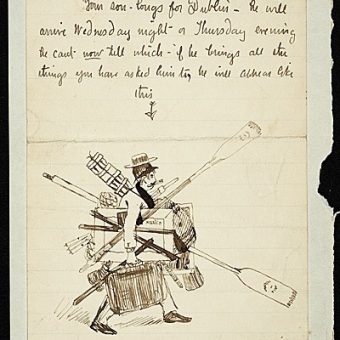 Your son - longs for Dublin - he will
arrive Wednesday night - or Thursday evening
he can't now tell which - if he brings all the
things you have asked him to, he will appear like
this